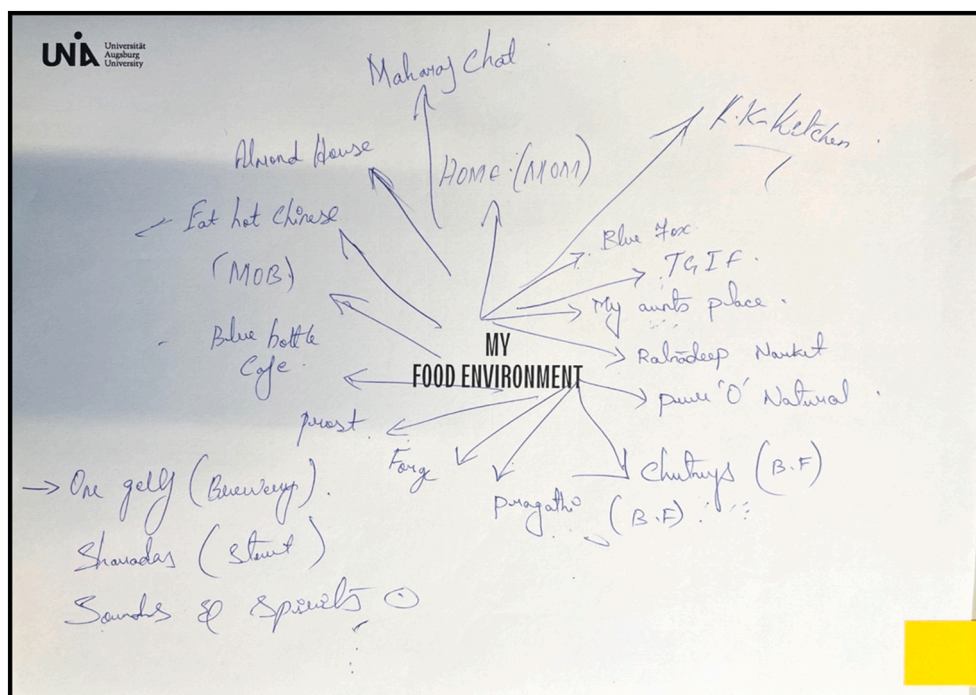 UNIA Universität
Augsburg
University
Maharaj Chat
K.K-Kitchen
Almond House
HOME (MOM)
Fat hot chinese
(MOB)
Blue Fox
TGIF
My aunts place
Blue bottle
Cafe
Market
MY
FOOD ENVIRONMENT
pure 'O' Natural
prost
Forge
Chutnys (B.F)
pragathi
(B.F)
One golf (Brewery)
Sharadas (Street)
Sounds & Spirits